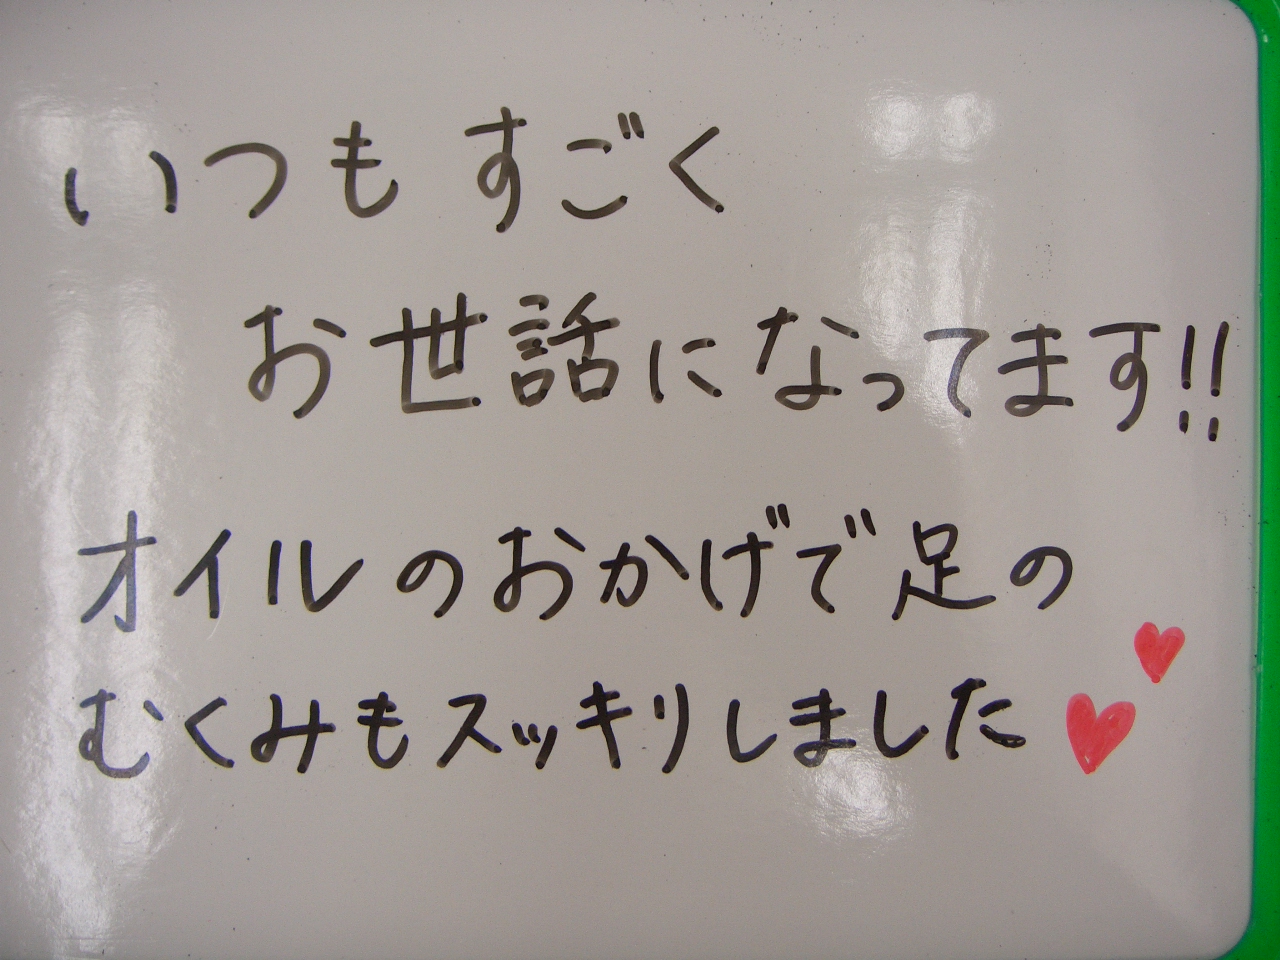 いつも すごく
お世話になってます!!
オイルのおかげで足の
むくみもスッキリしました♥♥